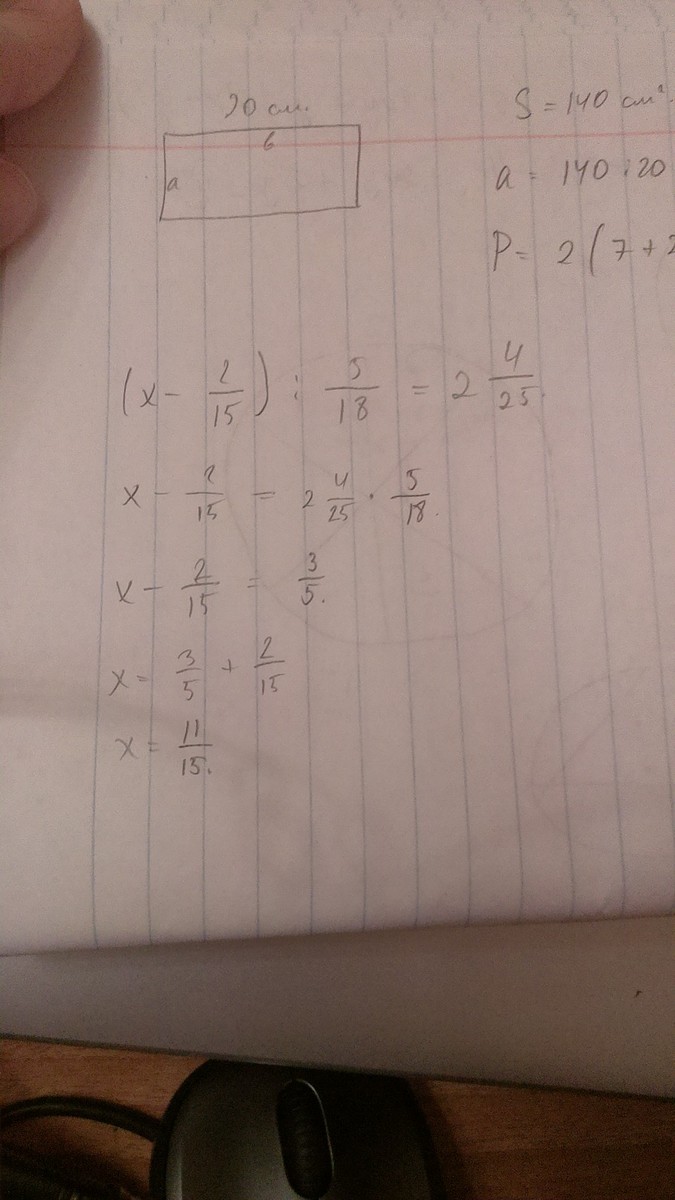 20 см.
в
a
S = 140 см².
a = 140 : 20
P = 2 (7 + 2
(x - 2/15) : 5/18 = 2 4/25.
x - 2/15 = 2 4/25 · 5/18.
x - 2/15 = 3/5.
x = 3/5 + 2/15
x = 11/15.